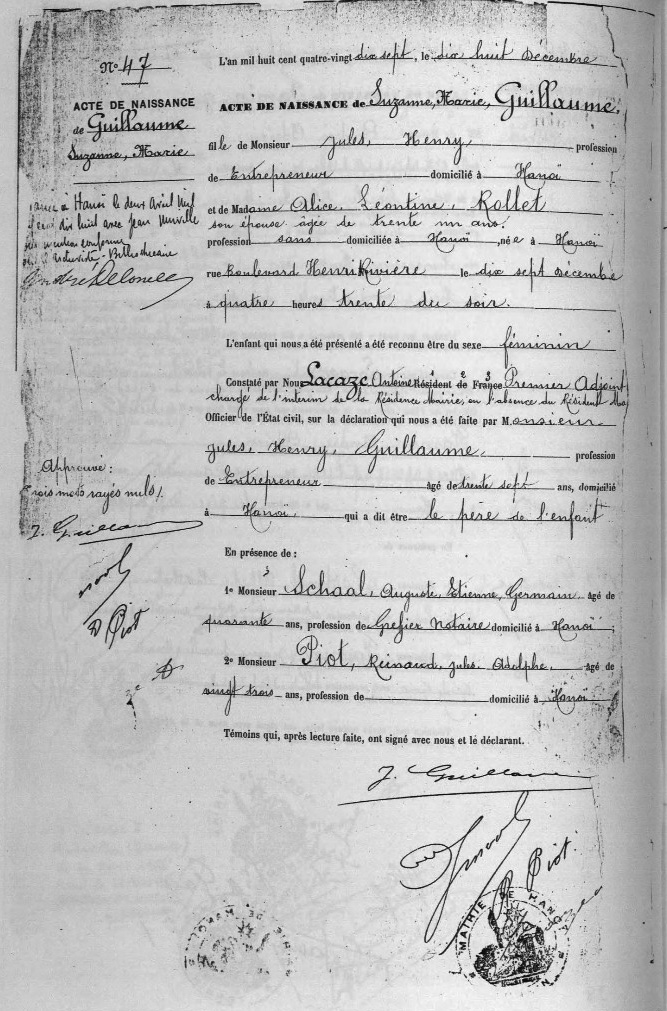 N° 47
ACTE DE NAISSANCE
de Guillaume
Suzanne, Marie
à Hanoï le deux Avril mil
dix huit avec Jean
Approuvé :
trois mots rayés nuls/.
J. Guillaume
D Piot
L'an mil huit cent quatre-vingt dix sept, le dix huit Décembre
ACTE DE NAISSANCE de Suzanne, Marie, Guillaume.
fille de Monsieur Jules, Henry profession
de Entrepreneur domicilié à Hanoï
et de Madame Alice, Léontine, Rollet
son épouse âgée de trente un ans.
profession sans domiciliée à Hanoï, née à Hanoï
rue Boulevard Henri Rivière le dix sept Décembre
à quatre heures trente du soir.
L'enfant qui nous a été présenté a été reconnu être du sexe féminin
Constaté par Nous Lacaze Antoine Résident de France Premier Adjoint
chargé de l'intérim de la Résidence Mairie, en l'absence du Résident
Officier de l'État civil, sur la déclaration qui nous a été faite par Monsieur
Jules, Henry, Guillaume profession
de Entrepreneur âgé de trente sept ans, domicilié
à Hanoï qui a dit être le père de l'enfant
En présence de :
1° Monsieur Schaal, Auguste, Etienne, Germain âgé de
quarante ans, profession de Greffier Notaire domicilié à Hanoï
2° Monsieur Piot, Reinaud, Jules, Adolphe âgé de
vingt trois ans, profession de domicilié à Hanoï
Témoins qui, après lecture faite, ont signé avec nous et le déclarant.
J. Guillaume
Piot
MAIRIE DE HANOI